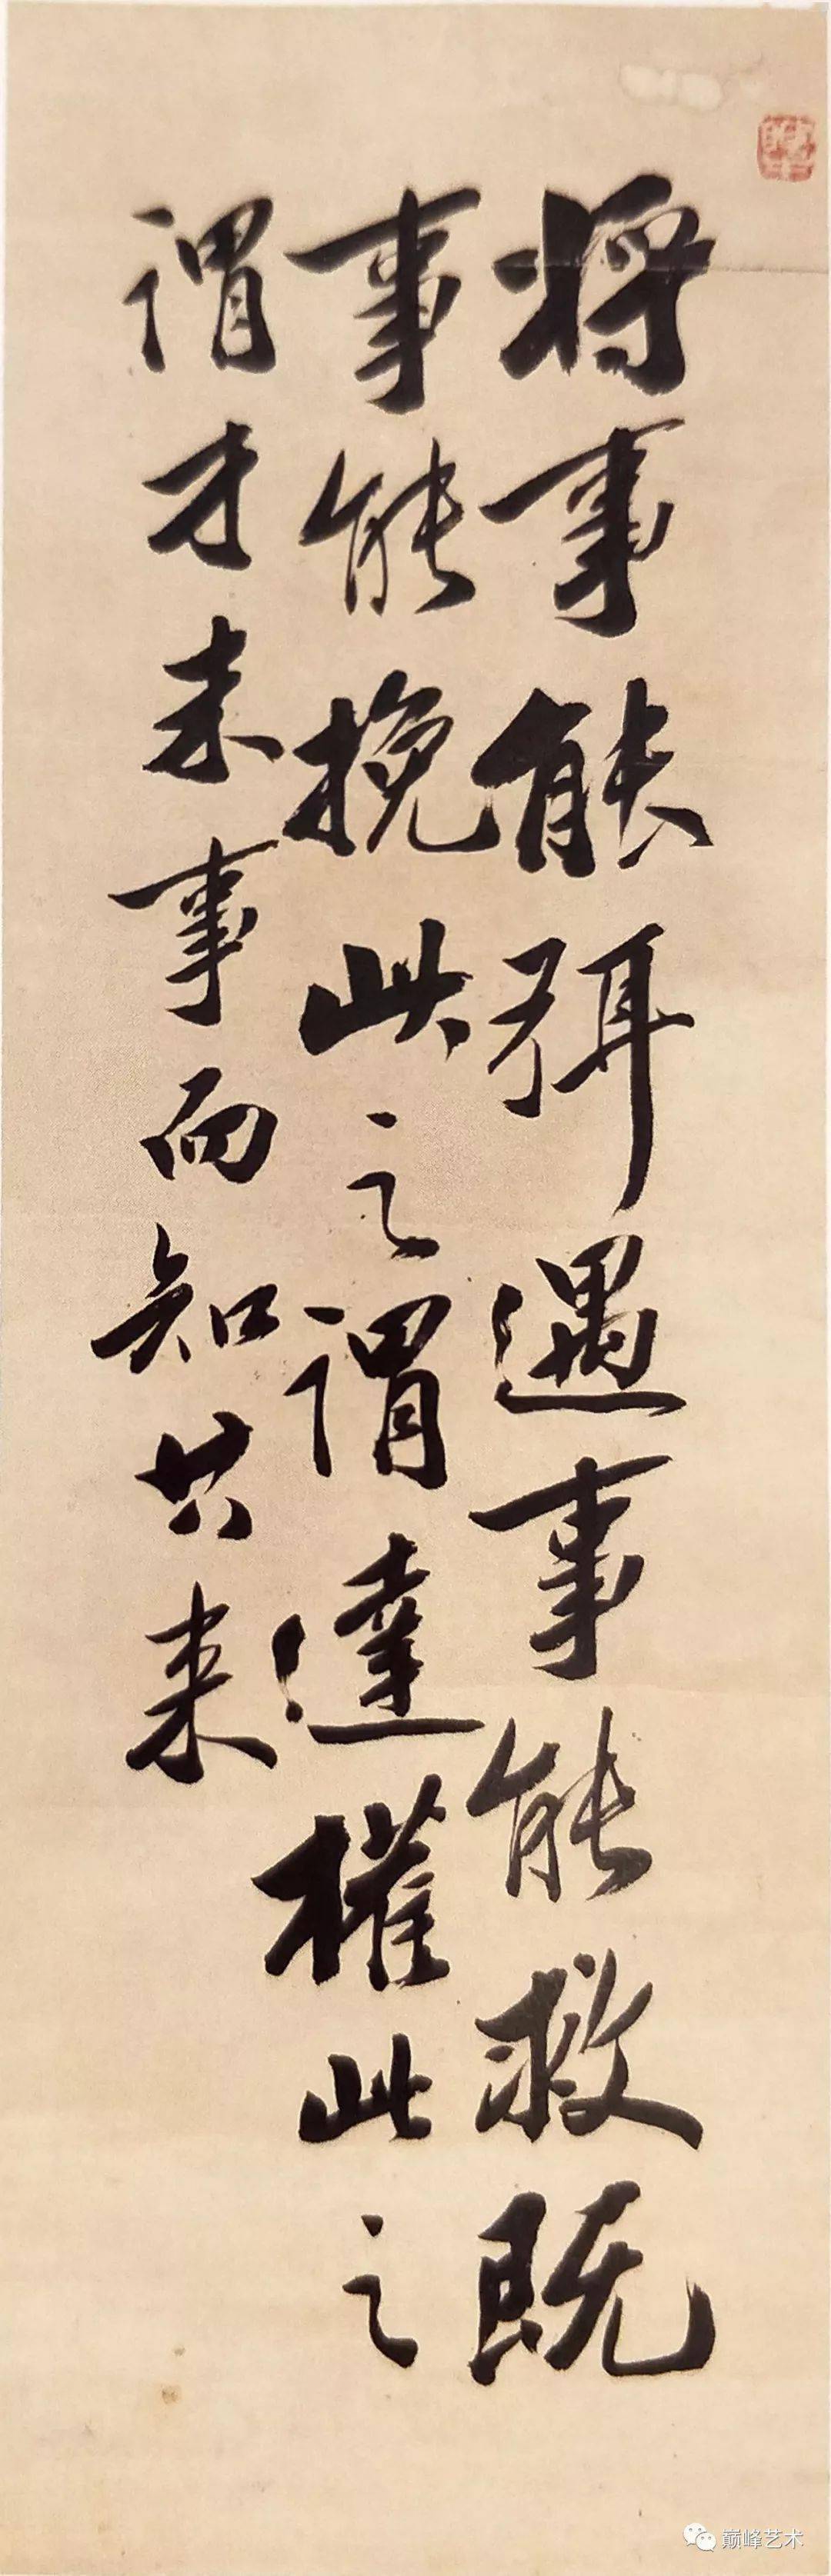 将事能弭遇事能救既
事能挽此之谓達權此之
谓才未事而知其来
巅峰艺术